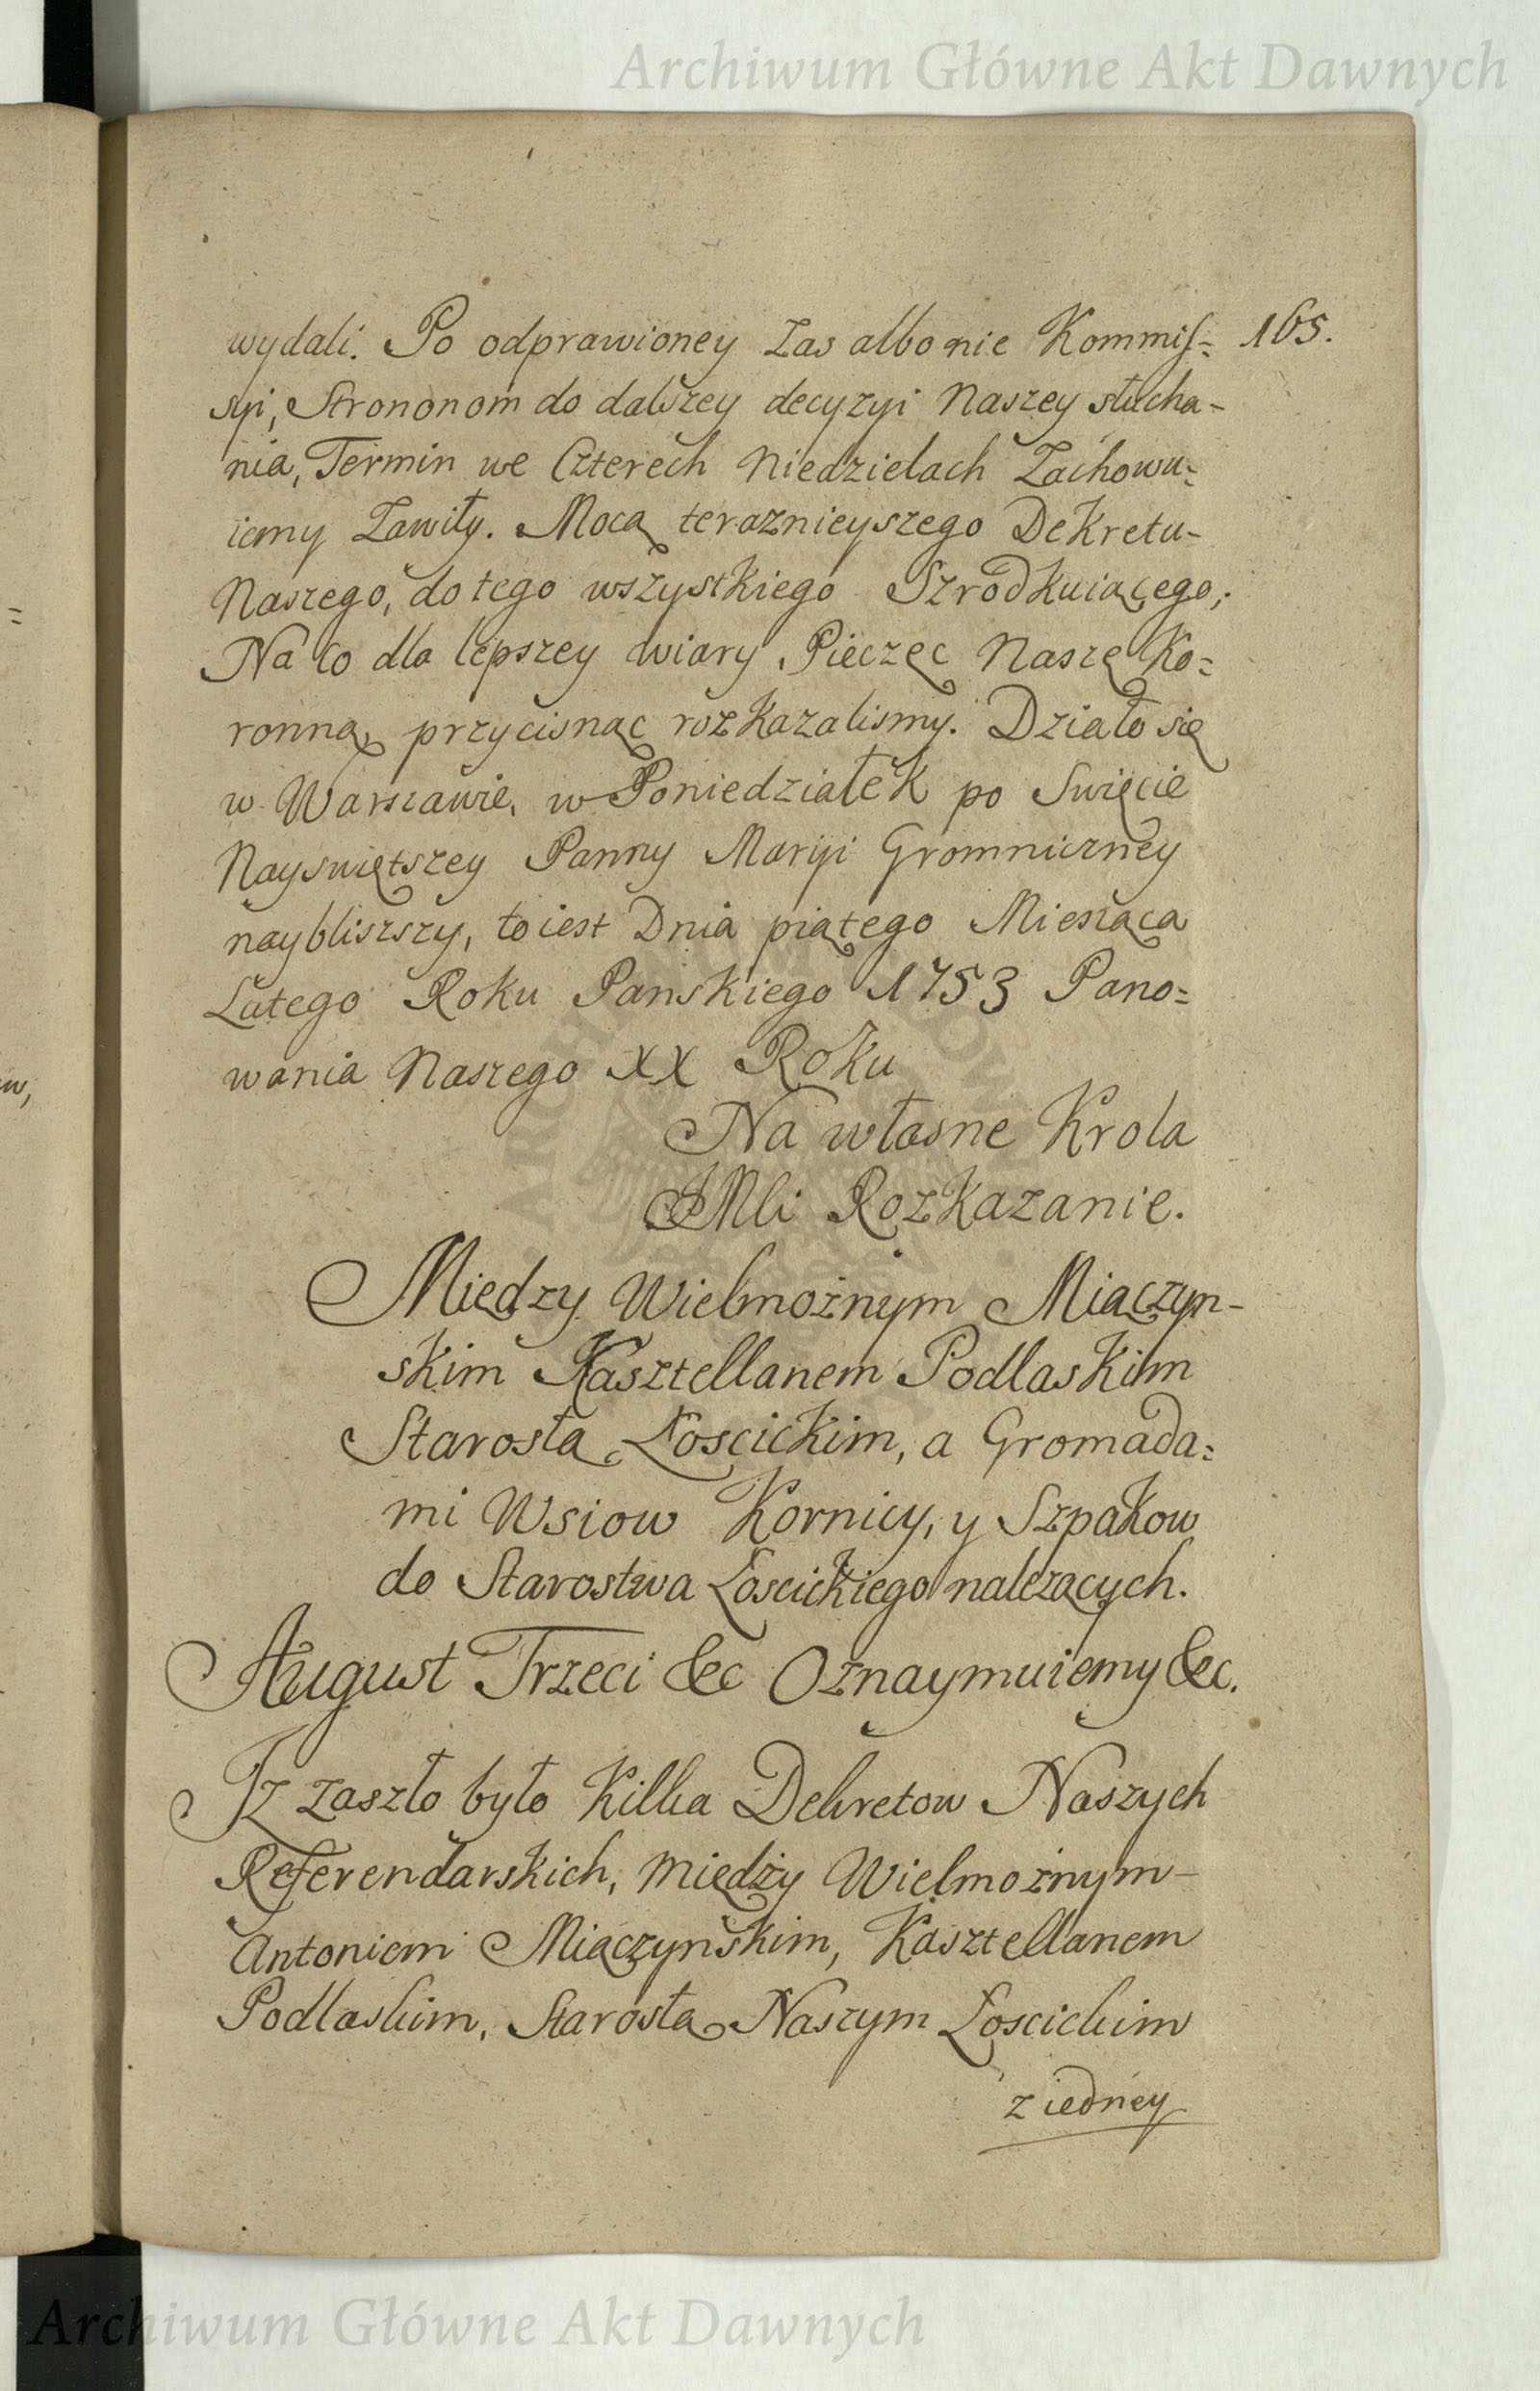 Archiwum Główne Akt Dawnych
165.
wydali. Po odprawioney zas albo nie Kommis=
syi, Strononom do dalszey decyzyi Naszey słucha-
nia, Termin we Czterech Niedzielach Zachowu=
iemy Zawity. Mocą teraznieyszego Dekretu-
Naszego, do tego wszystkiego Szrodkuiącego,
Na co dla lepszey wiary Pieczęc Naszę Ko=
ronną przycisnąc rozkazalismy. Działo się
w Warszawie, w Poniedziałek po Swięcie
Nayswiętszey Panny Maryi Gromniczney
naybliszszy, to iest Dnia piątego Miesiąca
Lutego Roku Panskiego 1753 Pano=
wania Naszego XX Roku
Na własne Krola
JMli Rozkazanie.
Między Wielmożnym Miączyn-
skim Kasztellanem Podlaskim
Starostą Łoscickim, a Gromada=
mi Wsiow Kornicy, y Szpakow
do Starostwa Łoscickiego należących.
August Trzeci &c Oznaymuiemy &c.
Iz zaszło było kilka Dekretow Naszych
Referendarskich, między Wielmożnym-
Antoniem Miączynskim, Kasztellanem
Podlaskim, Starostą Naszym Łoscickim
z iedney
Archiwum Główne Akt Dawnych